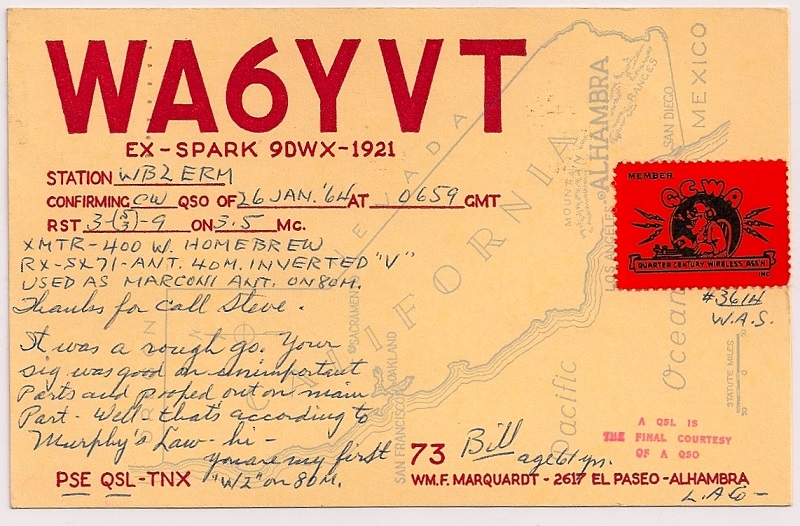 WA6YVT
EX-SPARK 9DWX-1921
STATION WB2ERM
CONFIRMING CW QSO OF 26 JAN. '64 AT 0659 GMT
RST 3-(5/3)-9 ON 3.5 MC.
XMTR-400 W. HOMEBREW
RX-SX71-ANT. 40M. INVERTED "V"
USED AS MARCONI ANT. ON 80M.
Thanks for call Steve.
It was a rough go. Your
sig was good on unimportant
Parts and pooped out on main
Part - Well - that's according to
Murphy's Law - hi -
you are my first
"W2" on 80M.
PSE QSL-TNX
73 Bill age 61 yrs.
WM.F. MARQUARDT - 2617 EL PASEO-ALHAMBRA
L.A Co-
MEMBER
QCWA
QUARTER CENTURY WIRELESS ASS'N
INC
#3614
W.A.S.
A QSL IS
THE FINAL COURTESY
OF A QSO
CALIFORNIA
NEVADA
OREGON
MEXICO
SAN DIEGO
RANGES
ALHAMBRA
MOUNT
LOS ANGELES
SACRAMENTO
OAKLAND
SAN FRANCISCO
Pacific
Ocean
STATUTE MILES
50 0 50